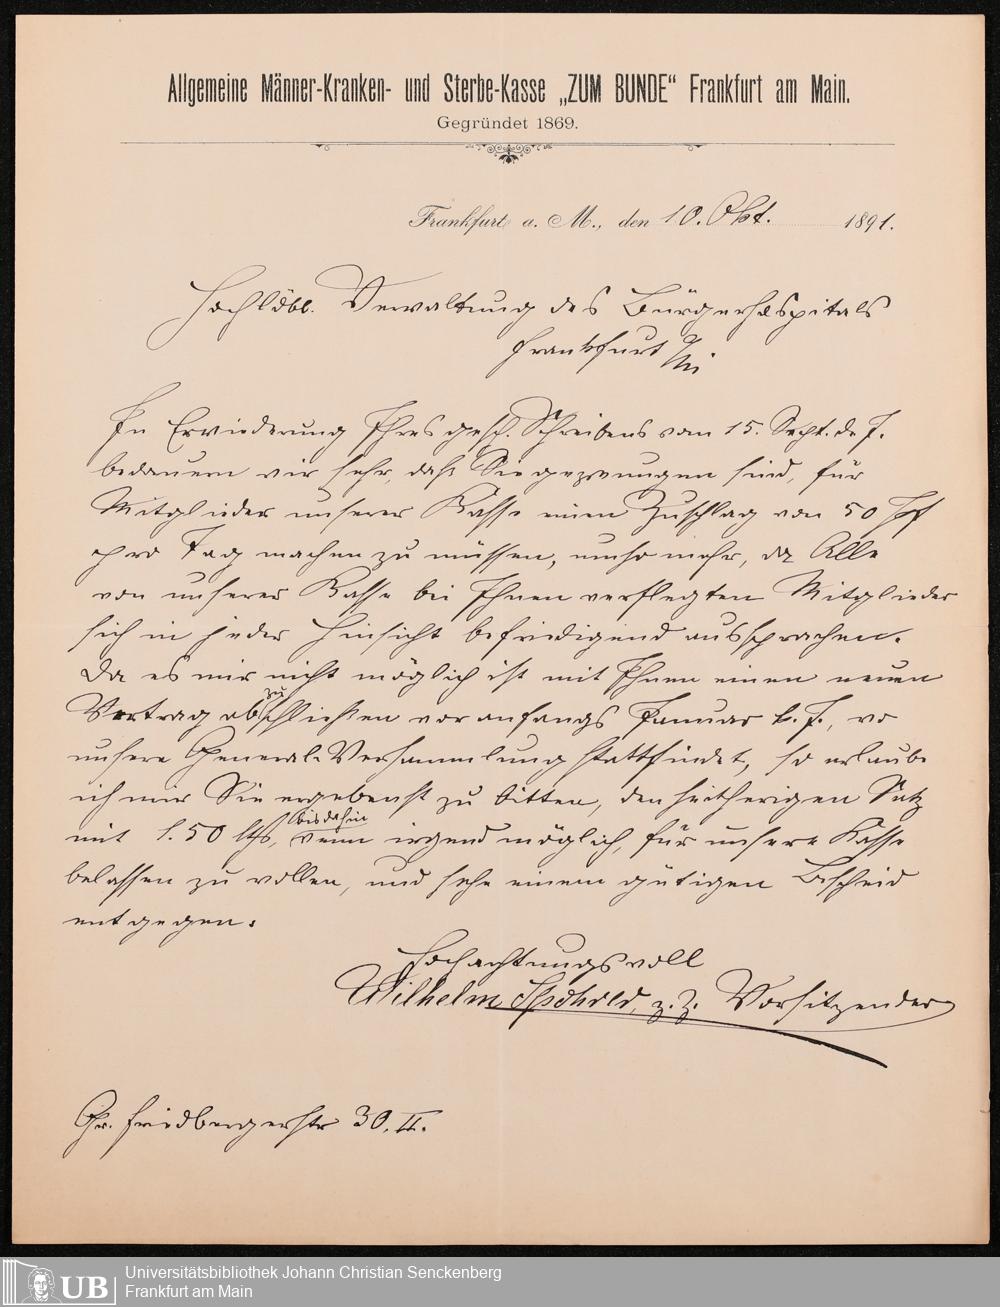 Allgemeine Männer-Kranken- und Sterbe-Kasse „ZUM BUNDE“ Frankfurt am Main.
Gegründet 1869.
Frankfurt a. M., den 10. Okt. 1891.
Hochlöbl. Verwaltung des Bürgerhospitals
Frankfurt a/M
In Erwiederung Ihres gesch. Schreibens vom 15. Sept. d. J.
bedauern wir sehr, daß Sie gezwungen sind, für
Mitglieder unserer Kasse einen Zuschlag von 50 Pf
pro Tag machen zu müssen, umso mehr, da Alle
von unserer Kasse bei Ihnen verpflegten Mitglieder
sich in jeder Hinsicht befriedigend aussprachen.
Da es mir nicht möglich ist mit Ihnen einen neuen
Vertrag abzuschließen vor anfangs Januar k. J., wo
unsere General-Versammlung stattfindet, so erlaube
ich mir Sie ergebenst zu bitten, den seitherigen Satz
mit 1.50 bis dahin, wenn irgend möglich, für unsere Kasse
belassen zu wollen, und sehe einem gütigen Bescheid
entgegen.
Hochachtungsvoll
Wilhelm z. Z. Vorsitzender
Gr. Friedbergerstr 30. II.
UB
Universitätsbibliothek Johann Christian Senckenberg
Frankfurt am Main